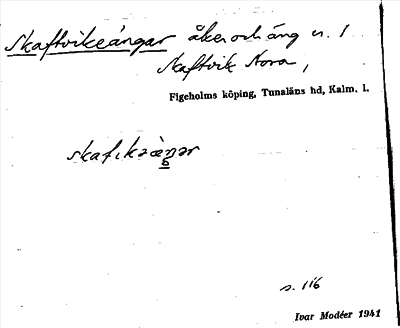 Skaftvikeängar åker och äng n. 1
Skaftvik Norra,
Figeholms köping, Tunaläns hd, Kalm. l.
skafıkəàŋar
s. 116
Ivar Modéer 1941